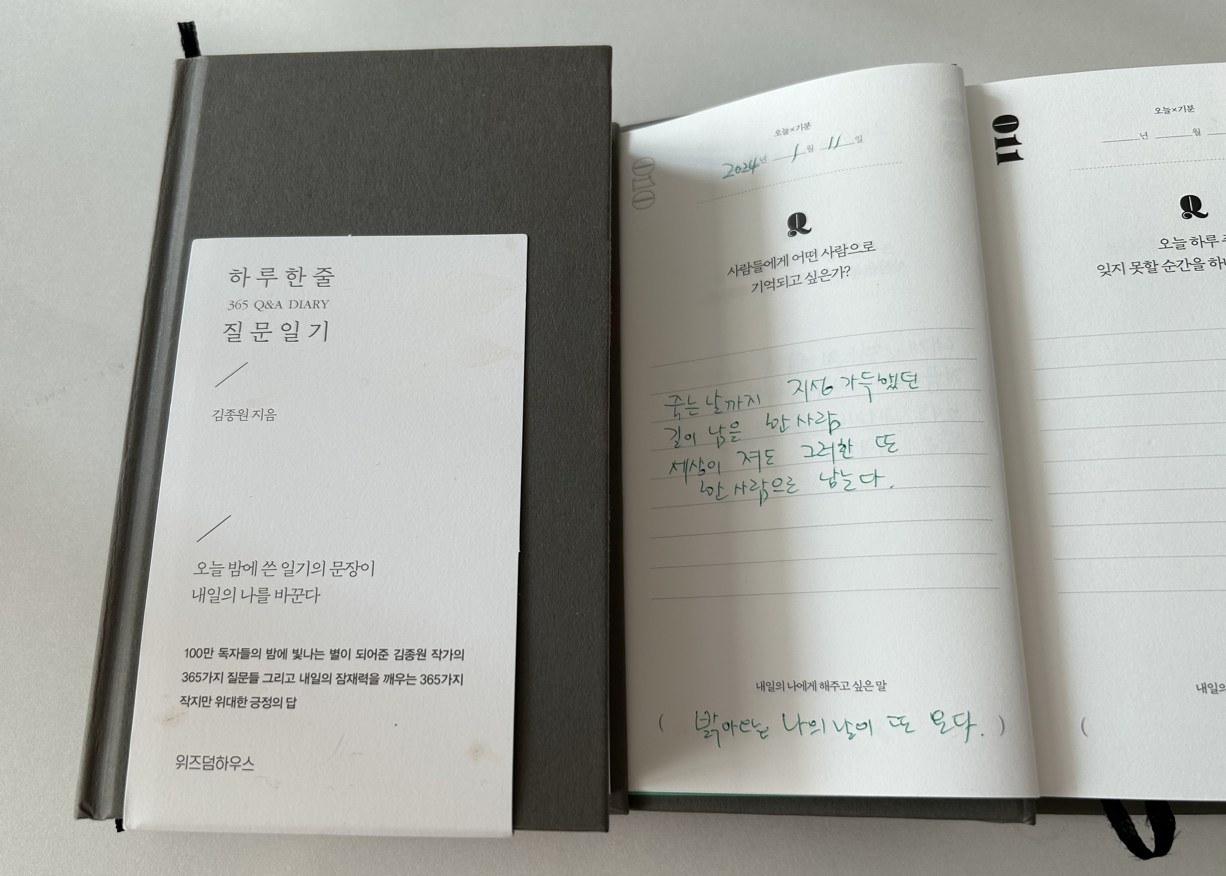 하루한줄
365 Q&A DIARY
질문일기
김종원 지음
오늘 밤에 쓴 일기의 문장이
내일의 나를 바꾼다
100만 독자들의 밤에 빛나는 별이 되어준 김종원 작가의
365가지 질문들 그리고 내일의 잠재력을 깨우는 365가지
작지만 위대한 긍정의 답
위즈덤하우스
010
오늘×기분
2024년 1월 11일
Q
사람들에게 어떤 사람으로
기억되고 싶은가?
죽는 날까지 지성 가득했던
길이 남을 한 사람
세상이 져도 그러한 또
한 사람으로 남는다.
내일의 나에게 해주고 싶은 말
( 밝아오는 나의 날이 또 온다. )
011
오늘×기분
년 월
Q
오늘 하루
잊지 못할 순간을
내일의
(